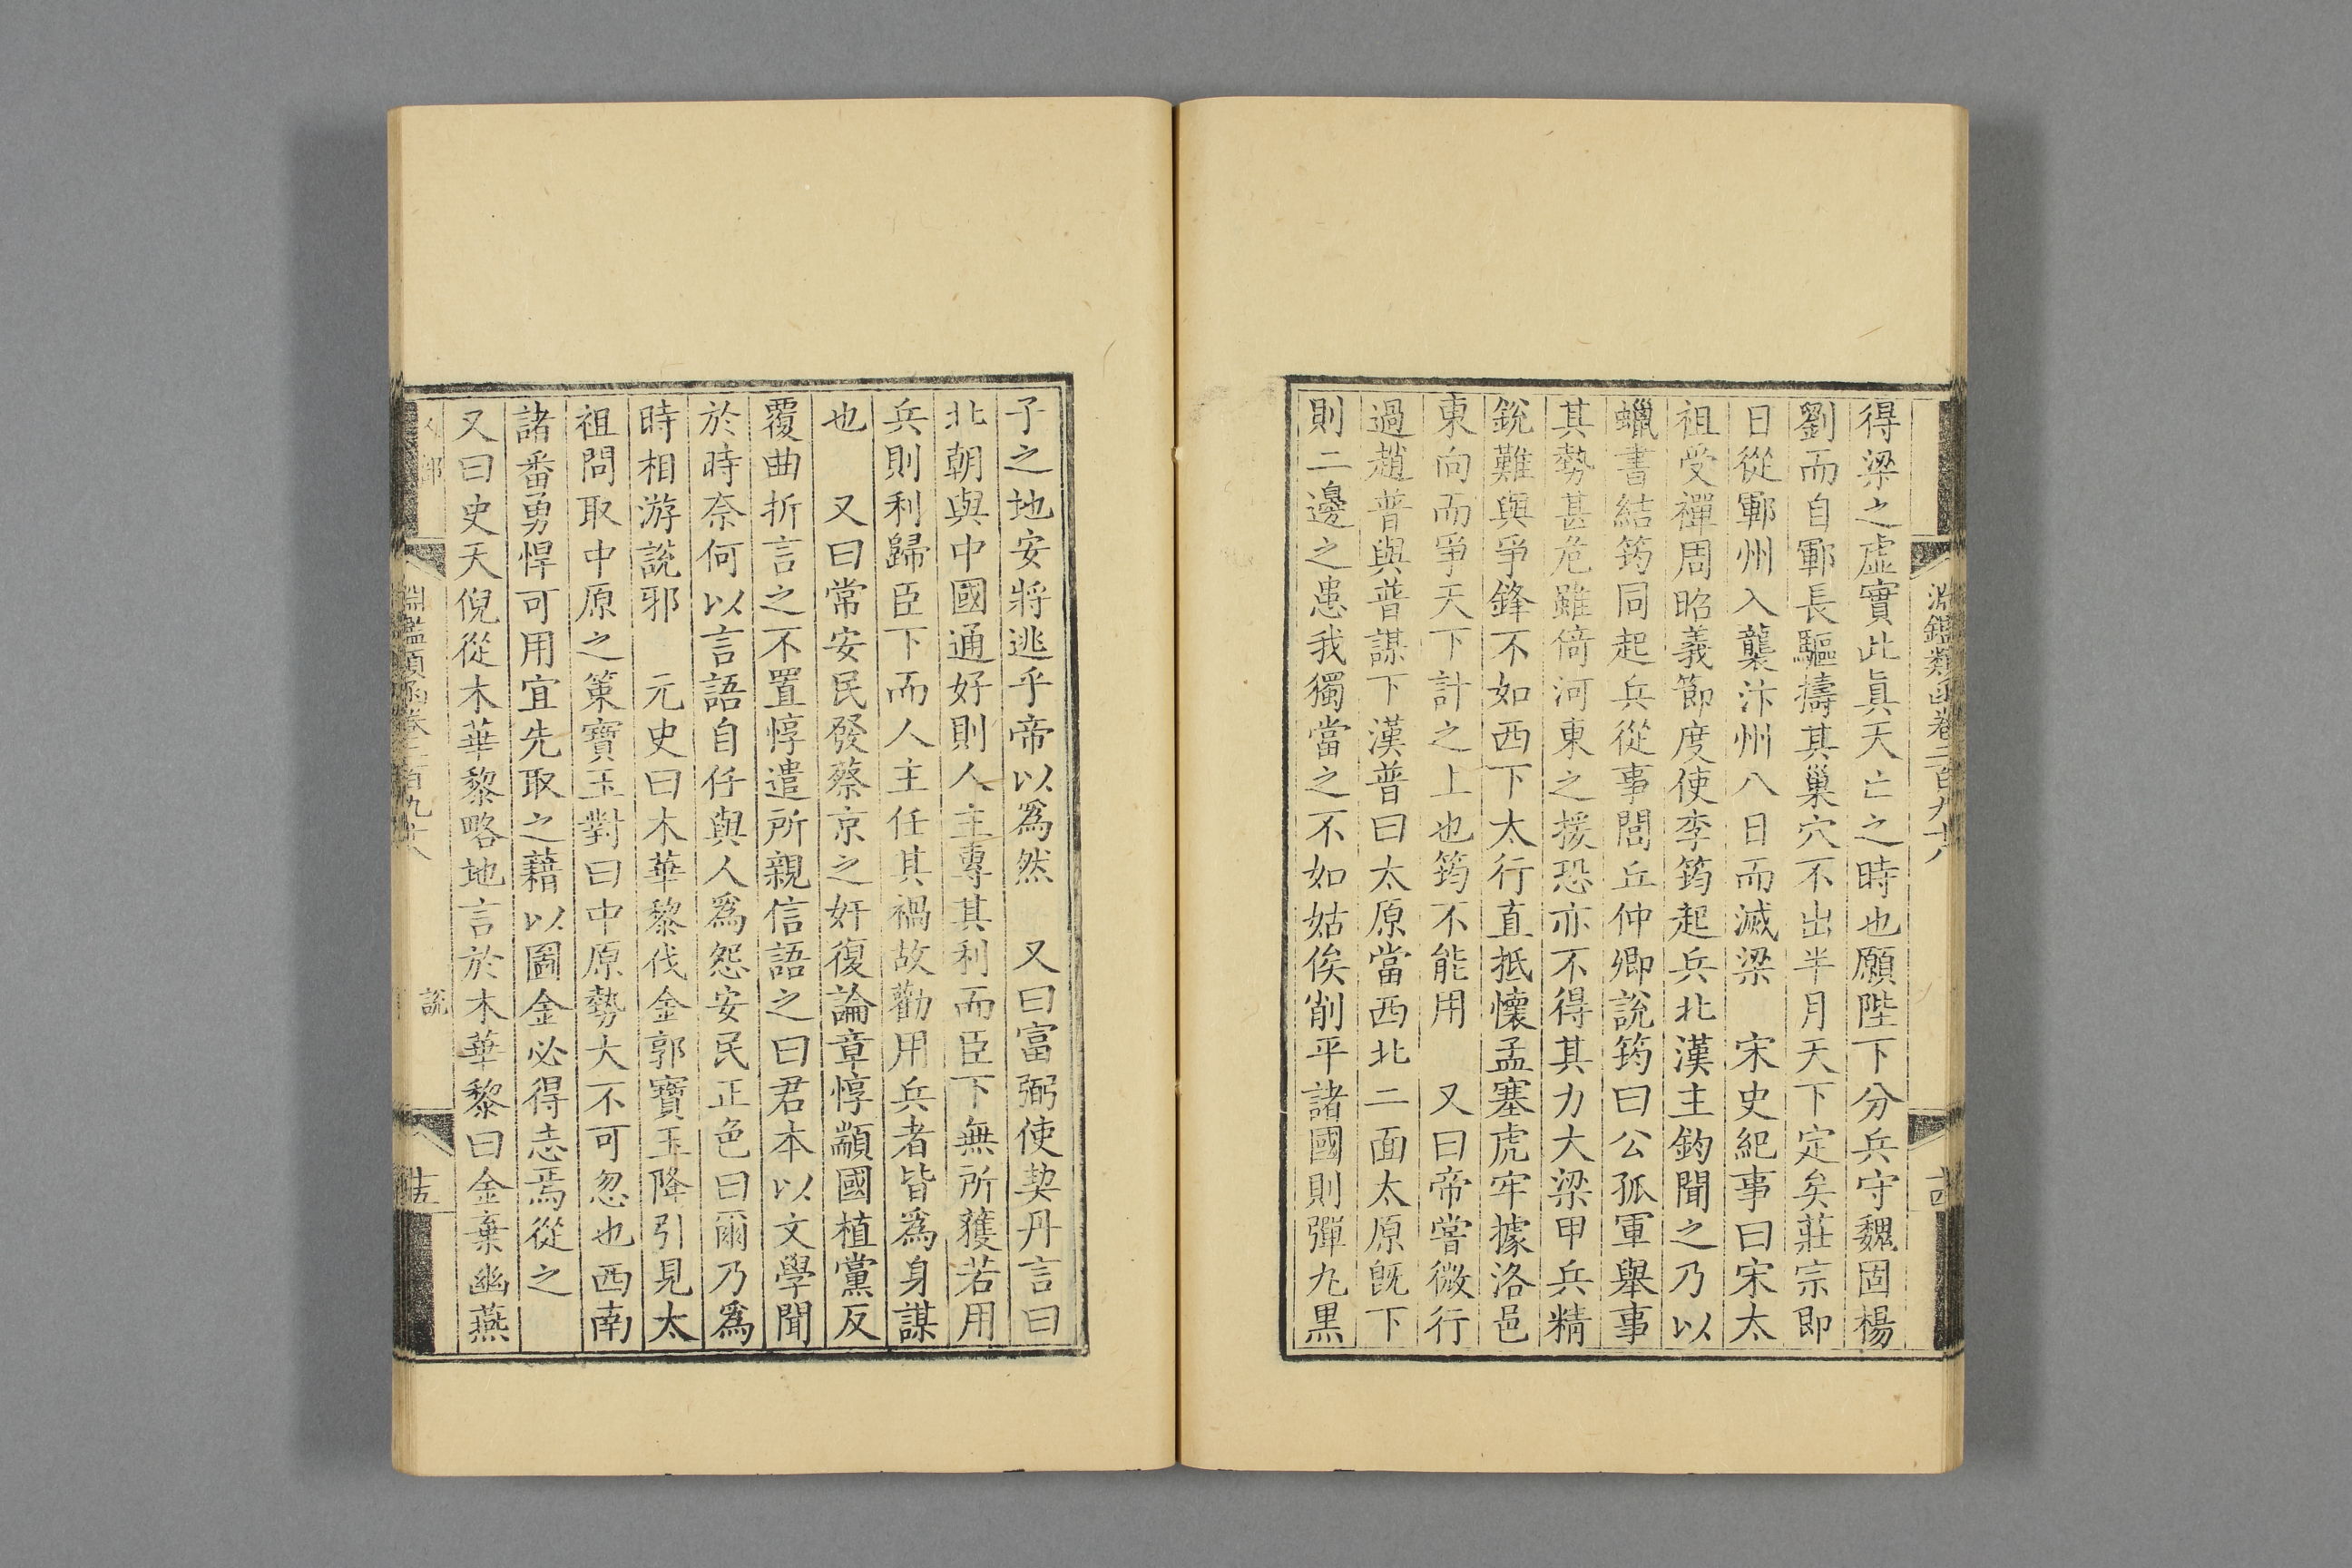 淵鑑類函卷二百九十八
得梁之虛實此眞天亡之時也願陛下分兵守魏固楊
劉而自鄆長驅擣其巢穴不出半月天下定矣莊宗即
日從鄆州入襲汴州八日而滅梁　宋史紀事曰宋太
祖受禪周昭義節度使李筠起兵北漢主鈞聞之乃以
蠟書結筠同起兵從事閭丘仲卿說筠曰公孤軍舉事
其勢甚危雖倚河東之援恐亦不得其力大梁甲兵精
銳難與爭鋒不如西下太行直抵懷孟塞虎牢據洛邑
東向而爭天下計之上也筠不能用　又曰帝嘗微行
過趙普與普謀下漢普曰太原當西北二面太原旣下
則二邊之患我獨當之不如姑俟削平諸國則彈丸黑
子之地安將逃乎帝以爲然　又曰富弼使契丹言曰
北朝與中國通好則人主專其利而臣下無所獲若用
兵則利歸臣下而人主任其禍故勸用兵者皆爲身謀
也　又曰常安民發蔡京之奸復論章惇顓國植黨反
覆曲折言之不置惇遣所親信語之曰君本以文學聞
於時奈何以言語自任與人爲怨安民正色曰爾乃爲
時相游說邪　元史曰木華黎伐金郭寶玉降引見太
祖問取中原之策寶玉對曰中原勢大不可忽也西南
諸番勇悍可用宜先取之藉以圖金必得志焉從之
又曰史天倪從木華黎略地言於木華黎曰金棄幽燕
淵鑑類函卷二百九十八　說　十五